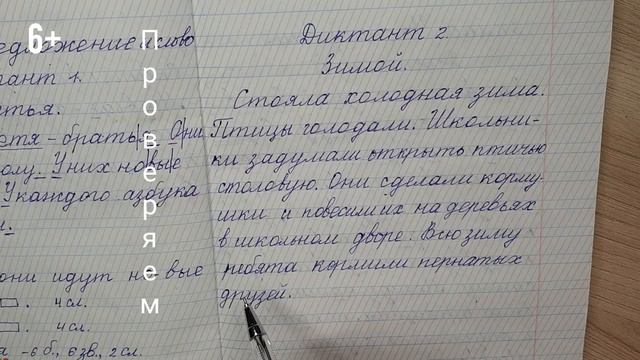 6+
Проверяем
едложение и слово
ант 1.
тья.
етя - братья. Они
олу. У них новые
У каждого азбука
и.
они идут но-вые
4 сл.
4 сл.
а - 6 б., 6 зв., 2 сл.
Диктант 2.
Зимой.
Стояла холодная зима.
Птицы голодали. Школьни-
ки задумали открыть птичью
столовую. Они сделали корму-
шки и повесили их на деревьях
в школьном дворе. Всю зиму
ребята кормили пернатых
друзей.